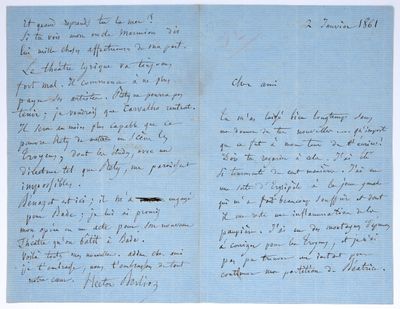 2 Janvier 1861
Cher ami
Tu m'as laissé bien longtemps sans
me donner de tes nouvelles ... qu'importe
que ce fut à mon tour de t'écrire!
Dois tu regarder à cela? J'ai été
si tourmenté de cent manières. J'ai eu
une sorte d'Erésipèle à la joue gauche
qui m'a fait beaucoup souffrir et dont
il me reste une inflammation de la
paupière. J'ai eu des montagnes d'épreuves
à corriger pour les Troyens, et je n'ai
pas pu trouver un instant pour
continuer ma partition de Béatrice.
Et quand reprends tu la mer?
Si tu vois mon oncle Marmion dis
lui mille choses affectueuses de ma part.
Le théâtre lyrique va toujours
fort mal. Il commence à ne plus
payer ses artistes. Réty ne pourra pas
tenir; je voudrais que Carvalho rentrât.
Il sera au moins plus capable que ce
pauvre Réty de mettre en scène les
Troyens, dont les études, avec un
directeur tel que Réty, me paraissent
impossibles.
Benazet est ici; il m'a engagé
pour Bade; je lui ai promis
mon opéra en un acte pour son nouveau
Théâtre qu'on bâtit à Bade.
Voilà toutes mes nouvelles. adieu cher ami
je t'embrasse, nous t'embrassons de tout
notre cœur. Hector Berlioz